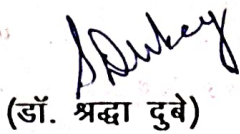 SDubey
(डॉ. श्रद्धा दुबे)